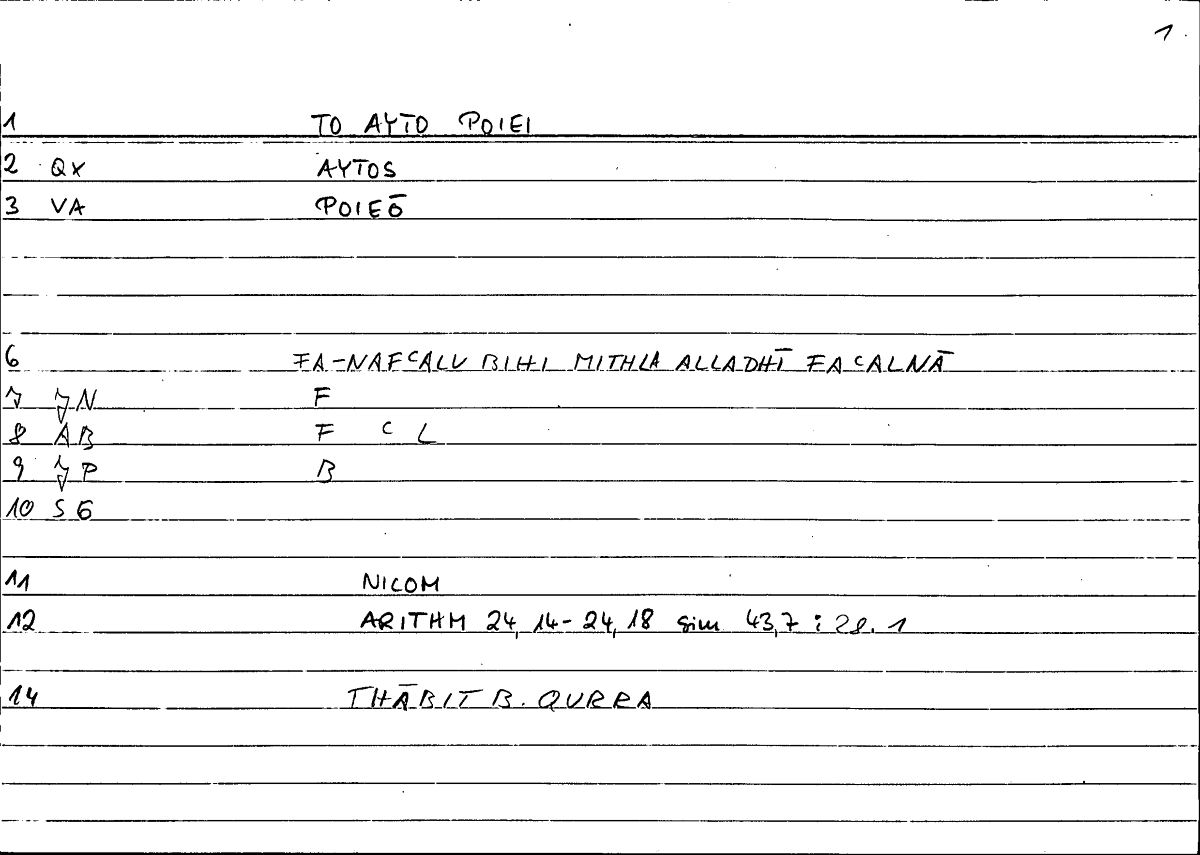 1.
1 TO AYTO POIEI
2 QX AYTOS
3 VA POIEŌ
6 FA-NAFCALU BIHI MITHLA ALLADHĪ FACALNĀ
7 JN F
8 AB F C L
9 JP B
10 SG
11 NICOM
12 ARITHM 24,14-24,18 sim 43,7; 28.1
14 THĀBIT B. QURRA